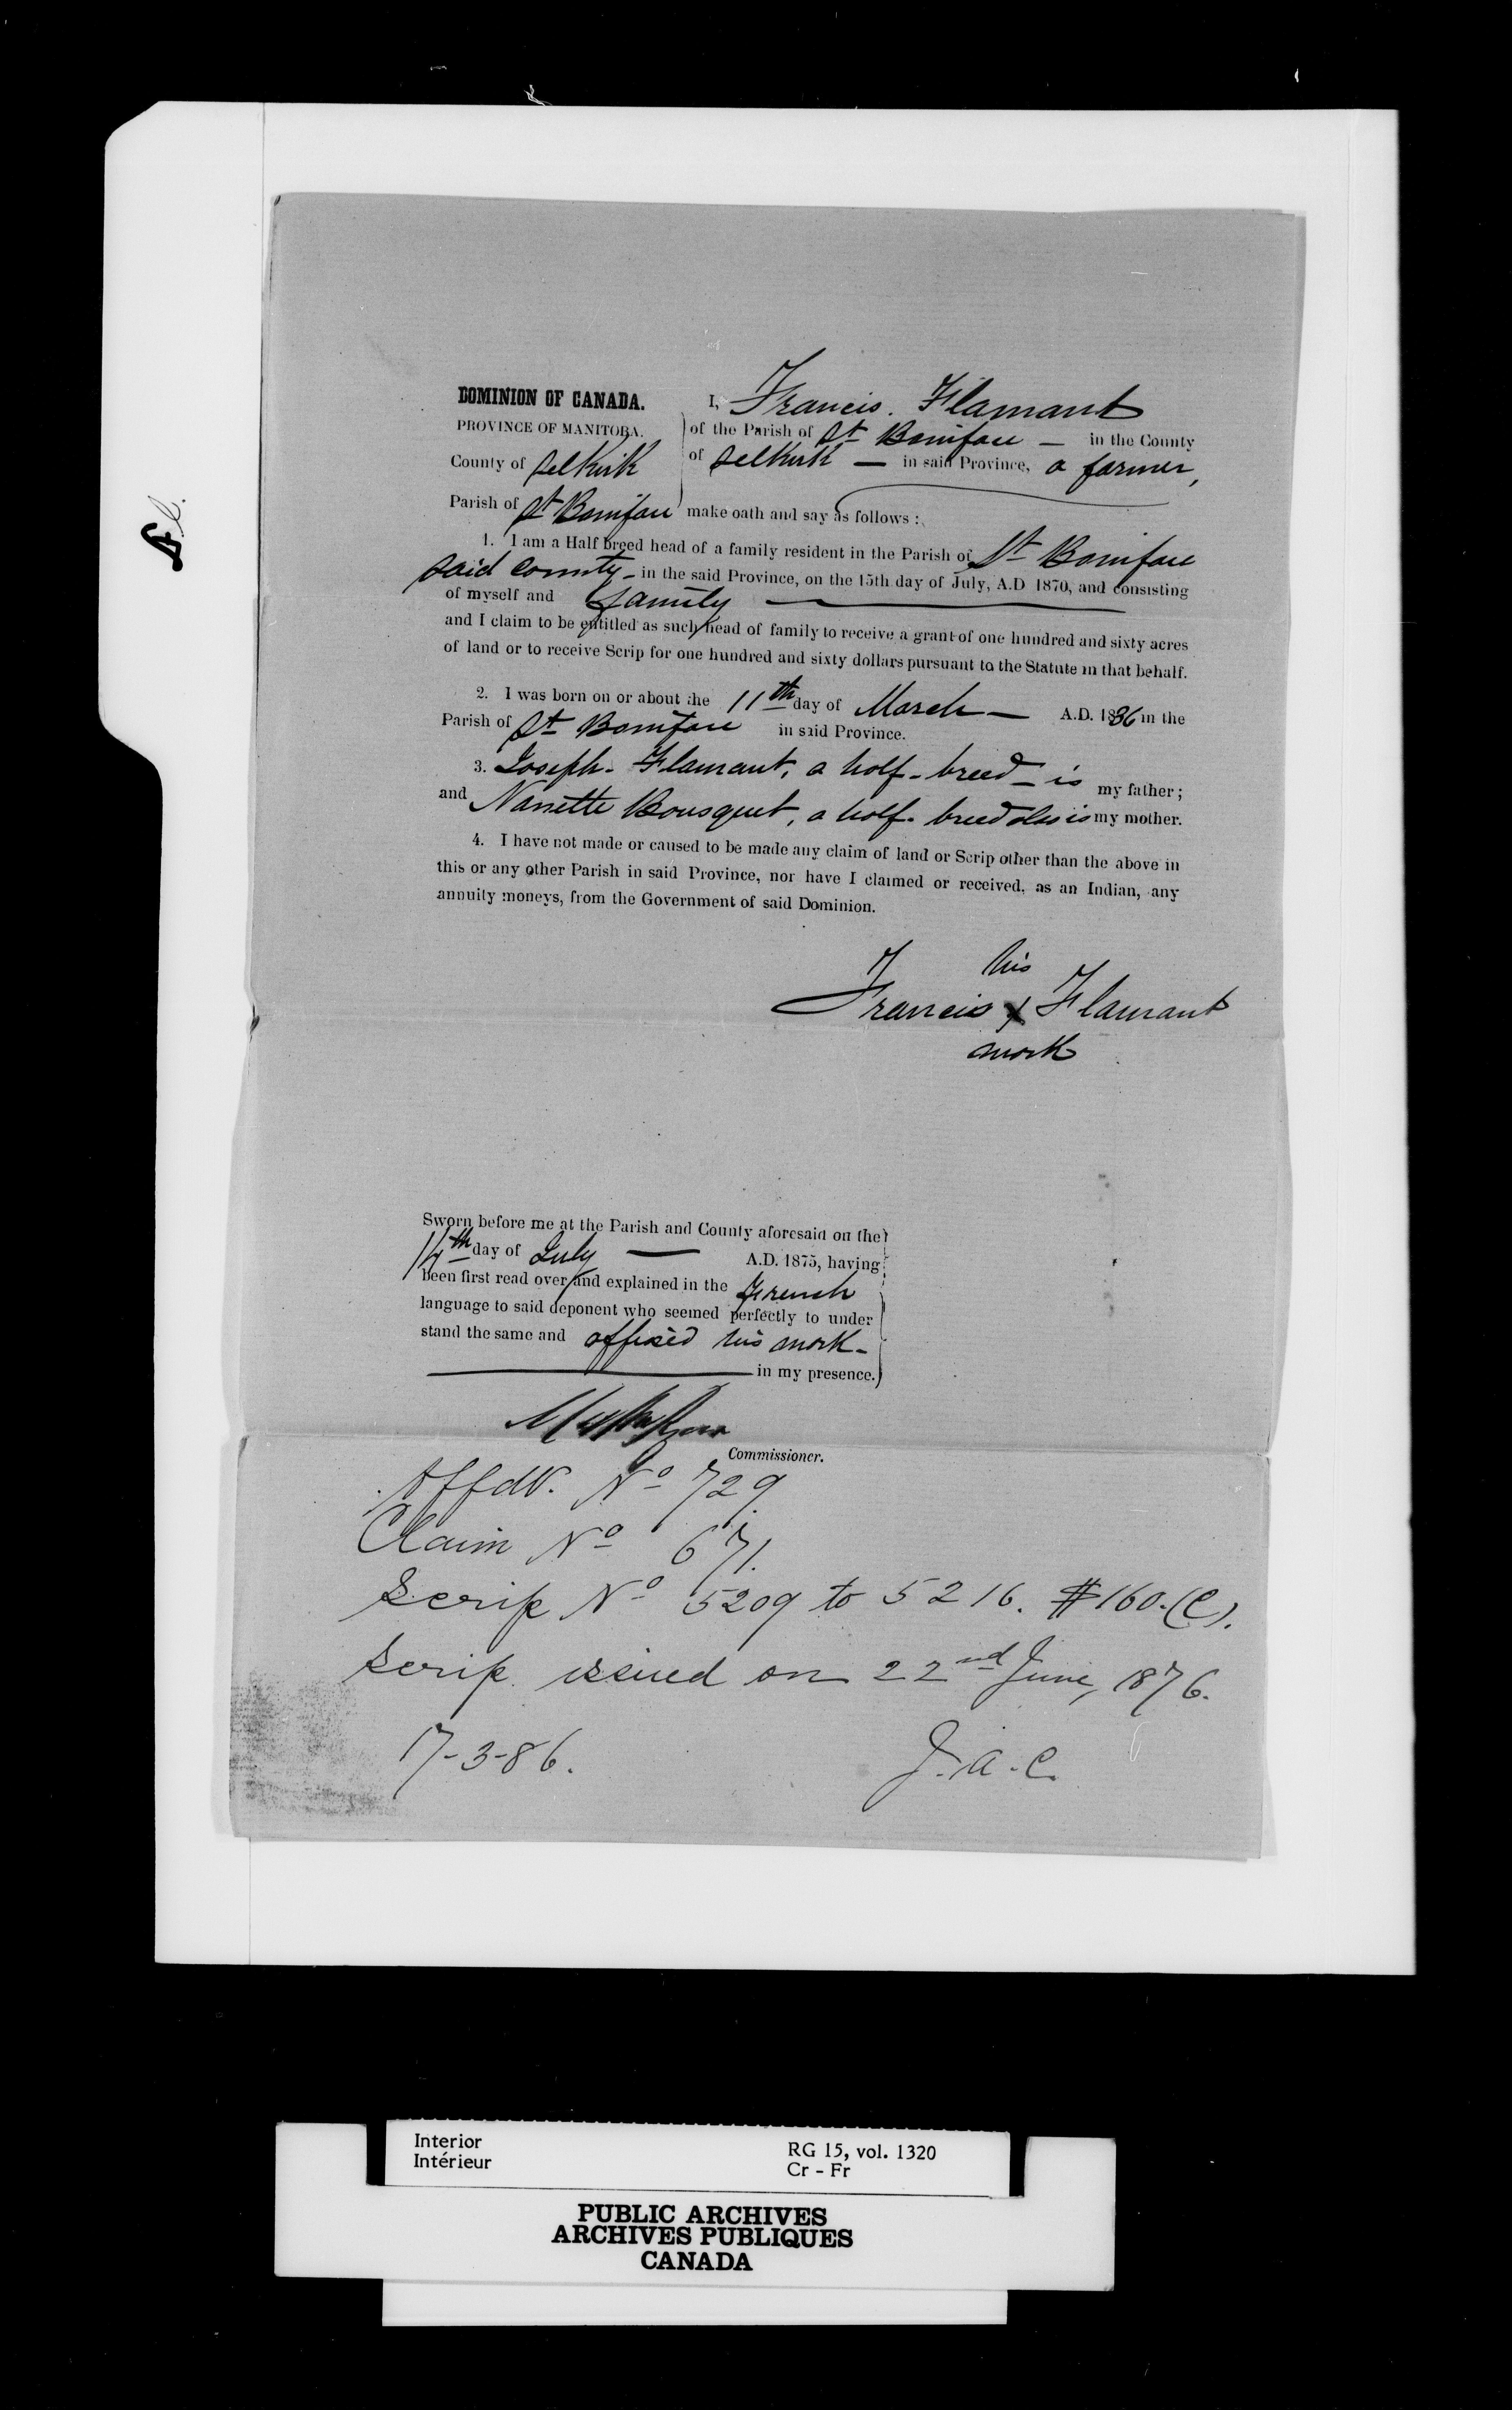 Fl.
DOMINION OF CANADA.
PROVINCE OF MANITOBA.
County of Selkirk
Parish of St Boniface
I, Francis. Flamant
of the Parish of St Boniface — in the County
of Selkirk — in said Province, a farmer,
make oath and say as follows:
1. I am a Half breed head of a family resident in the Parish of St Boniface
said County - in the said Province, on the 15th day of July, A.D 1870, and consisting
of myself and family —
and I claim to be entitled as such head of family to receive a grant of one hundred and sixty acres
of land or to receive Scrip for one hundred and sixty dollars pursuant to the Statute in that behalf.
2. I was born on or about the 11th day of March — A.D. 1836 in the
Parish of St Boniface in said Province.
3. Joseph. Flamant, a half-breed - is my father;
and Nanette Bousquet, a half-breed also is my mother.
4. I have not made or caused to be made any claim of land or Scrip other than the above in
this or any other Parish in said Province, nor have I claimed or received, as an Indian, any
annuity moneys, from the Government of said Dominion.
his
Francis X Flamant
mark
Sworn before me at the Parish and County aforesaid on the
14th day of July — A.D. 1875, having
been first read over and explained in the French
language to said deponent who seemed perfectly to under
stand the same and affixed his mark -
— in my presence.
Commissioner.
Affdv. No 729.
Claim No 671.
Scrip No 5209 to 5216. $160.(C).
Scrip issued on 22nd June, 1876.
17-3-86. J.A.C.
Interior
Intérieur
RG 15, vol. 1320
Cr - Fr
PUBLIC ARCHIVES
ARCHIVES PUBLIQUES
CANADA